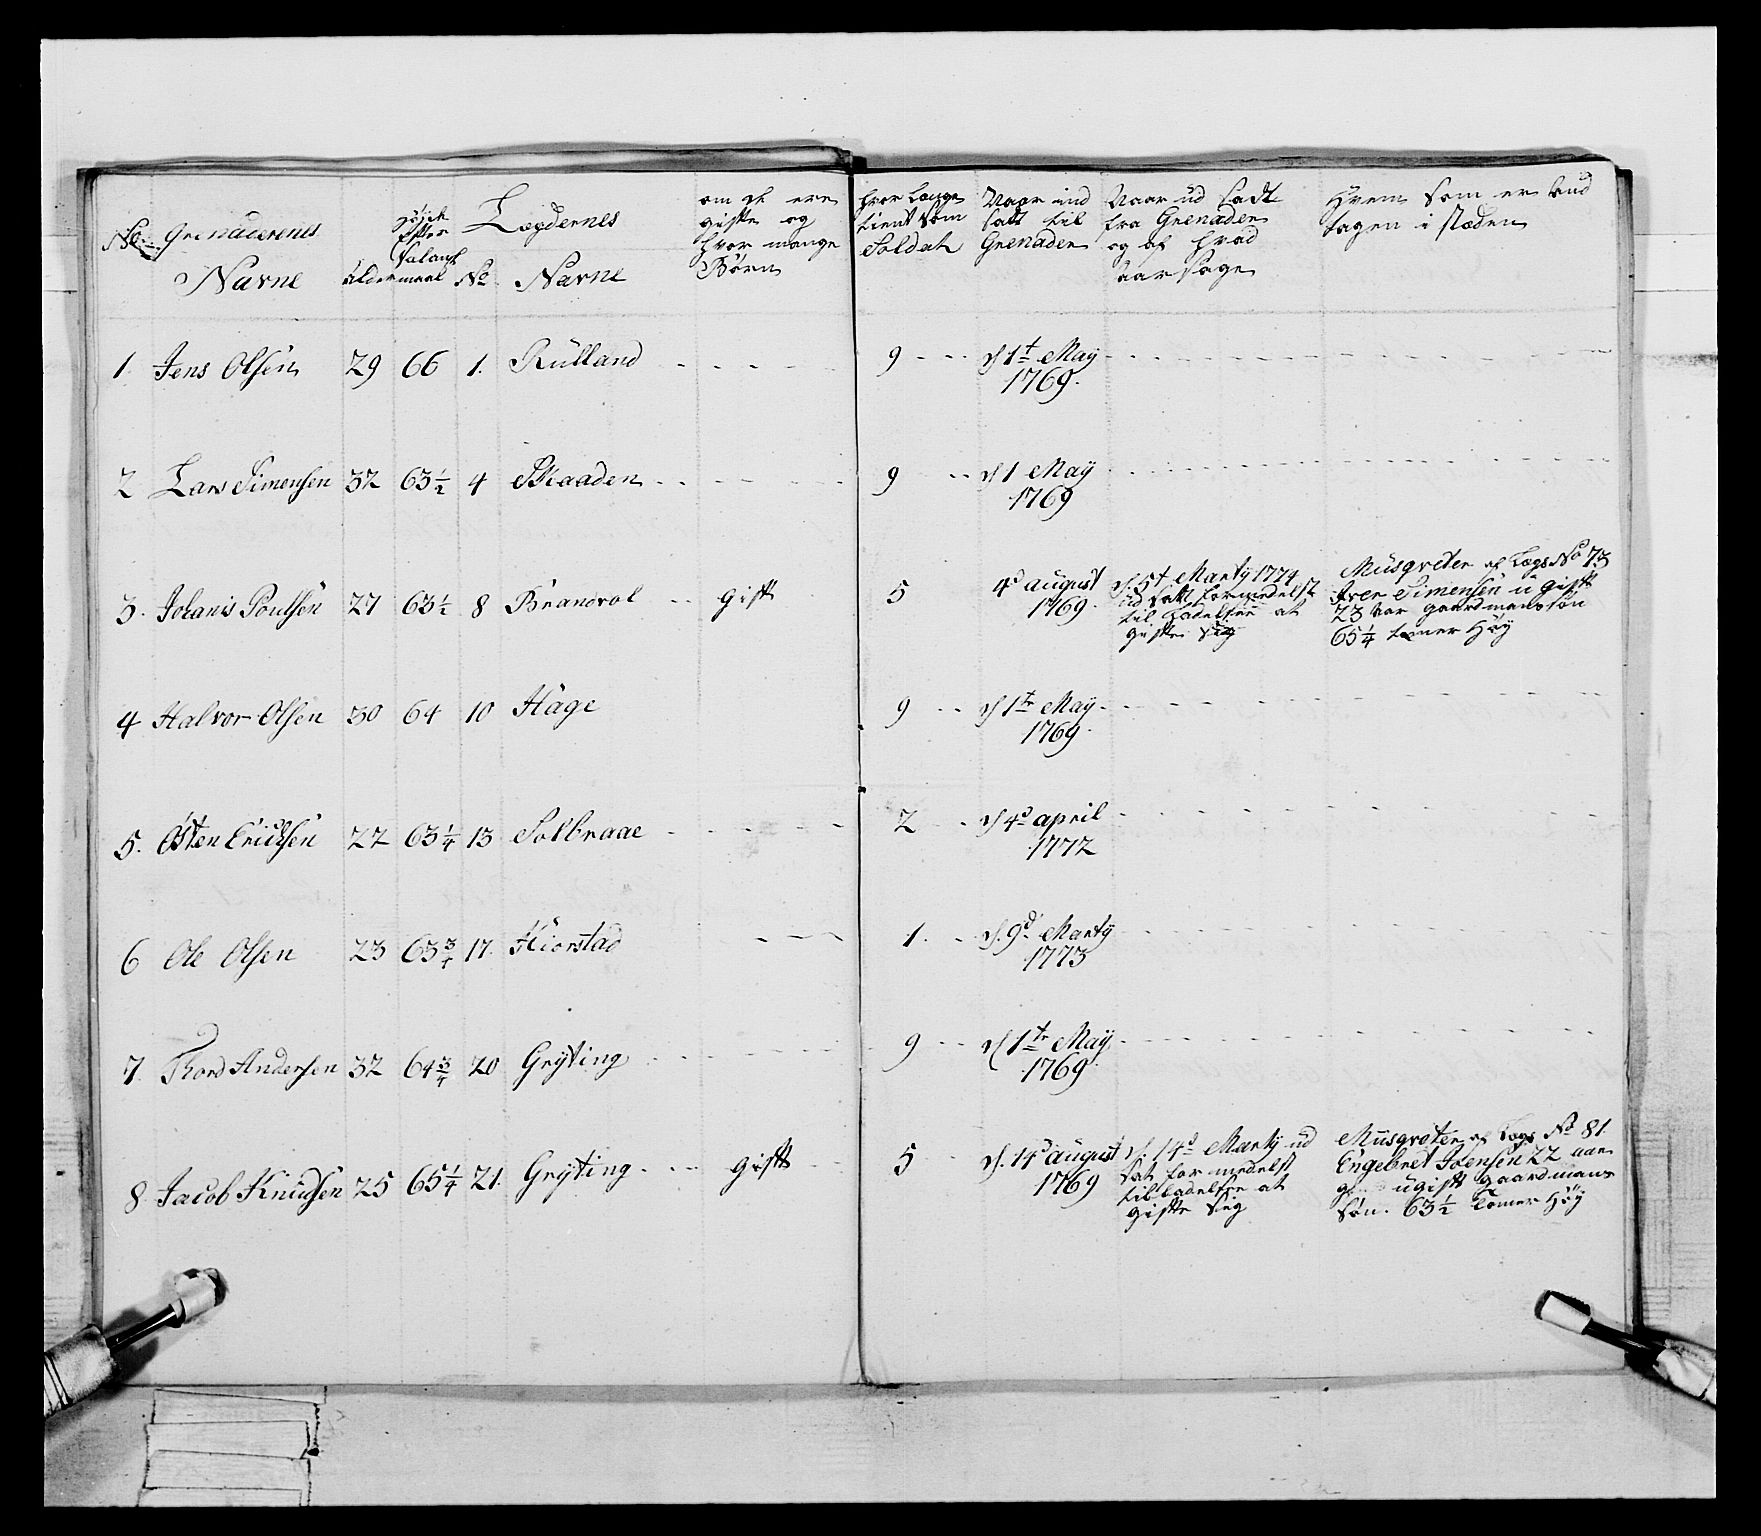 No Grenaderenes Navne
Alder
maal
Lægdernes
No Navne
om de ere
gifte og
hvor mange
Börn
hvor længe
tient som
Soldat
Naar ind
satt til
Grenader
Naar ud Satt
fra Grenader
og af hvad
aarsage
Hvem som er And
tagen i stæden
1. Jens Olsen 29 66 1. Rulland 9 d 1t May
1769.
2 Lars Simensen 32 63½ 4 Skaaden 9 d 1 May
1769
3. Johanis Poulsen 27 63½ 8 Brandvol gift 5 4d august
1769.
d. 5t Marty 1774
ud satt formedelst
til ladelsee at
gifte sig
Musqveter af Lægs No 73
Iver Simensen u gift
23 aar gaardmans søn
65¼ tomer Høy
4 Halvor Olsen 30 64 10 Hage 9 d 1te May
1769.
5. Østen Ericksen 22 63¼ 13 Solbraae 2 d 4d april
1772
6 Ole Olsen 23 63¾ 17. Kiorstad 1. d. 9d Marty
1773
7. Thord Andersen 32 64¾ 20 Gryting 9 d 1te May
1769
8. Jacob Knudsen 25 65¼ 21. Gryting gift 5 d. 14d august
1769
d. 14d Marty ud
sat for medelst
tilladelsee at
gifte sig
Musqveter af Lægs No 81.
Engebret Joensen 22 aar
ugift gaardmans
søn. 63½ tomer Høy